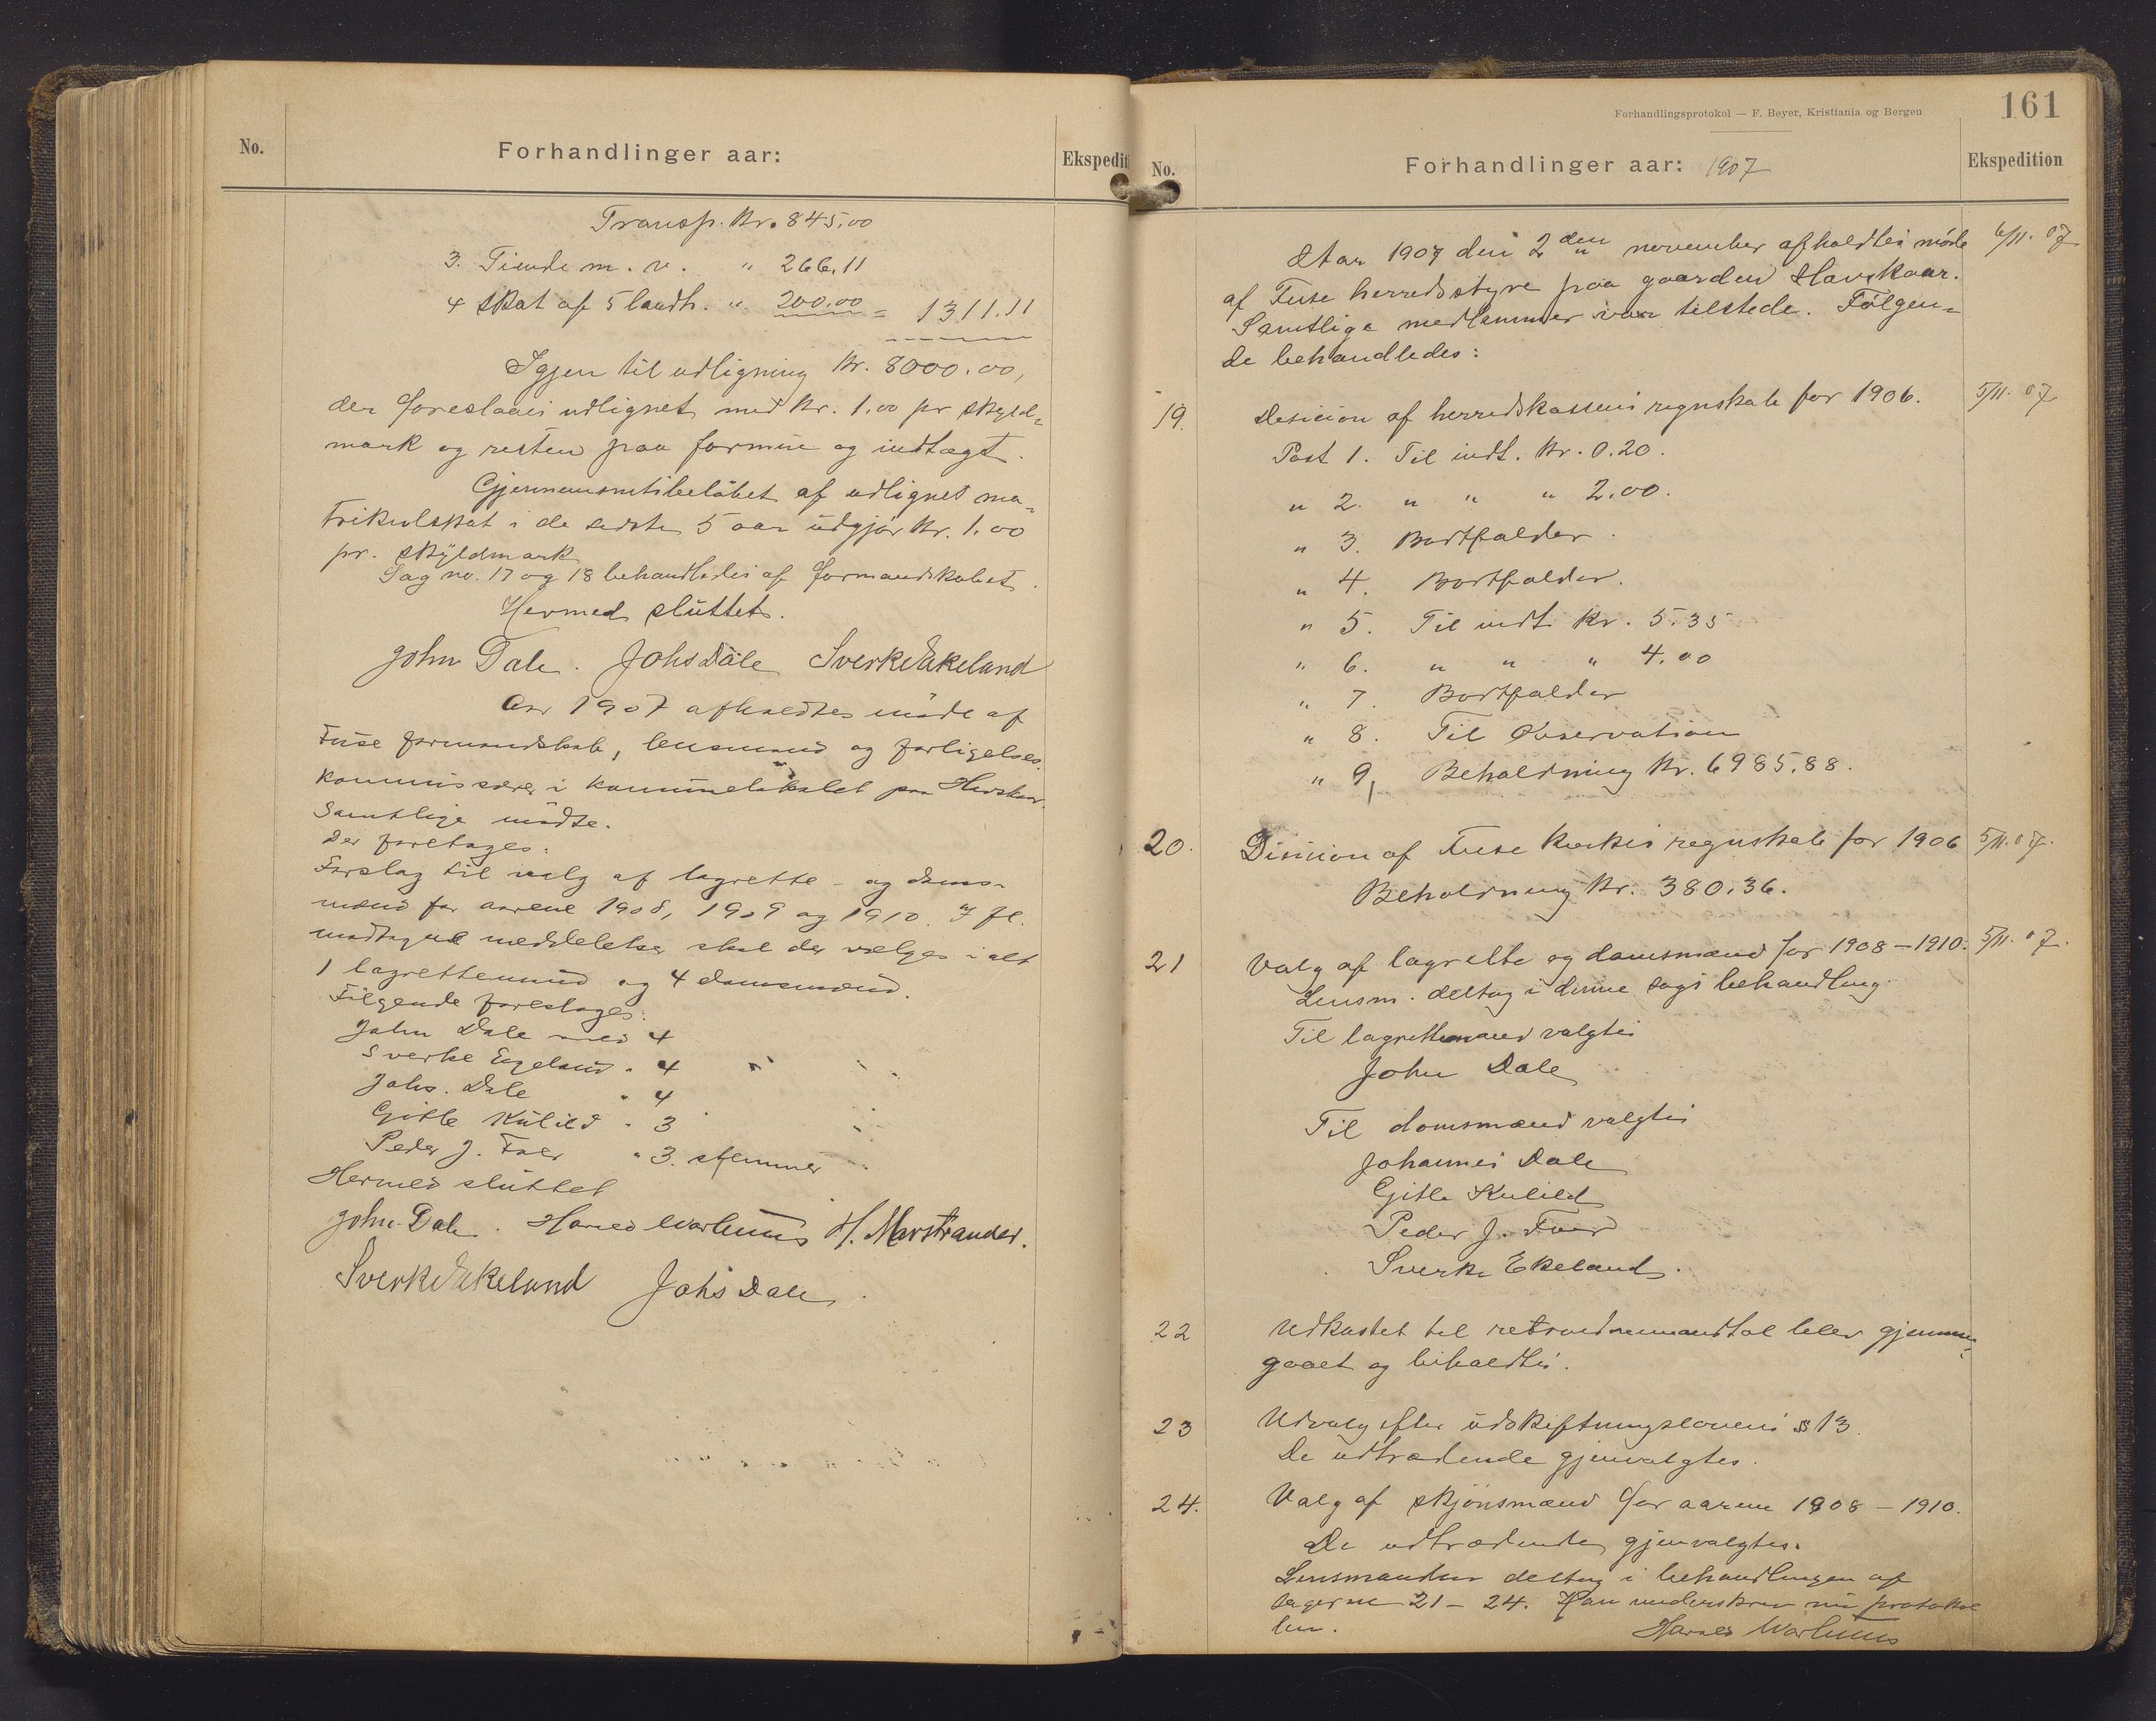 No.
Forhandlinger aar:
Ekspedit
Transp. Kr. 845.00
3. Tiende m. v. " 266.11
4 skat af 5 landh. " 200.00 = 1311.11
Igjen til udligning Kr. 8000.00,
der foreslaaes udlignet med Kr. 1.00 pr skyld=
mark og resten paa formue og indtægt.
Gjennemsnitsbeløbet af udlignet ma=
trikulskat i de sidste 5 aar udgjør Kr. 1.00
pr. skyldmark
Sag no. 17 og 18 behandledes af formandskabet.
Hermed sluttet.
John Dale. Johs Dale Sverke Ekeland
Aar 1907 afholdtes møde af
Fuse formandskab, lensmand og forligelses.
kommissærer i kommunelokalet paa Havskor.
Samtlige mødte.
Der foretages:
Forslag til valg af lagrette- og doms-
mænd for aarene 1908, 1909 og 1910. Ifl.
modtagne meddelelse skal der vælges i alt
1 lagrettemand og 4 domsmænd.
Følgende foreslages:
John Dale med 4
Sverke Egeland " 4
Johs. Dale " 4
Gitle Kulild " 3
Peder J. " 3. stemmer
Hermed sluttet
John Dale. H. Marstrander.
Sverke Ekeland Johs Dale
Forhandlingsprotokol — F. Beyer, Kristiania og Bergen
161
No.
Forhandlinger aar: 1907
Ekspedition
Aar 1907 den 2den november afholdtes møde 6/11. 07
af Fuse herredsstyre paa gaarden Havskaar.
Samtlige medlemmer var tilstede. Følgen=
de behandledes:
19. Desicion af herredskassens regnskab for 1906. 5/11. 07
Post 1. Til indt. Kr. 0.20.
" 2. " " " 2.00.
" 3. Bortfalder.
" 4. Bortfalder.
" 5. Til indt. Kr. 5.35
" 6. " " " 4.00
" 7. Bortfalder
" 8. Til Observation
" 9, Beholdning Kr. 6985.88.
20. Disicion af Fuse kirkes regnskab for 1906 5/11. 07.
Beholdning Kr. 380.36.
21 Valg af lagrette og domsmænd for 1908-1910. 5/11. 07.
Lensm. deltog i denne sags behandling.
Til lagrettemænd valgtes
John Dale
Til domsmænd valgtes
Johannes Dale
Gitle Kulild
Peder J.
Sverke Ekeland.
22 Udkastet til mandtal blev gjennem=
gaaet og beholdtes.
23 Udvalg efter udskiftningslovens § 13.
De udtrædende gjenvalgtes.
24. Valg af skjønsmænd for aarene 1908 - 1910.
De udtrædende gjenvalgtes.
Lensmanden deltog i behandlingen af
sagerne 21 - 24. Han underskrev nu protokol
len.